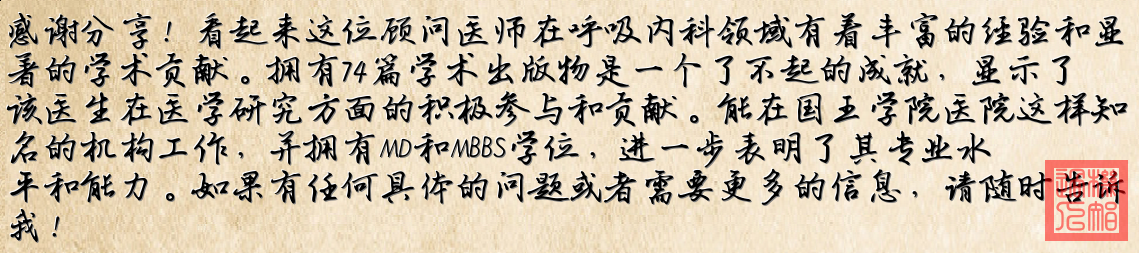 感谢分享！看起来这位顾问医师在呼吸内科领域有着丰富的经验和显
著的学术贡献。拥有74篇学术出版物是一个了不起的成就，显示了
该医生在医学研究方面的积极参与和贡献。能在国王学院医院这样知
名的机构工作，并拥有MD和MBBS学位，进一步表明了其专业水
平和能力。如果有任何具体的问题或者需要更多的信息，请随时告诉
我！